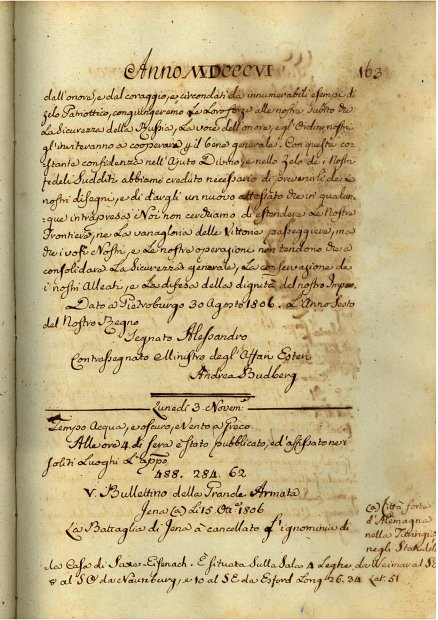 Anno MDCCCVI 163
dall'onore, e dal coraggio, e circondati da innumerabili esempi di
zelo Patriottico, congiungeremo le loro forze alle nostre subito che
la Sicurezza della Russia, la voce dell'onore, e gl'Ordini nostri
gl'inviteranno a cooperare pel bene generale. Con questa co-
stante confidenza nell'Ajuto Divino, e nello zelo de' Nostri
fedeli Sudditi abbiamo creduto necessario di prevenirli de'
nostri disegni, e di dargli un nuovo attestato che in qualun-
que intrapresa Noi non cerchiamo di estendere le Nostre
Frontiere, ne la vanagloria delle Vittorie passeggiere, ma
che i voti Nostri, e le nostre operazioni non tendono che a
consolidare la Sicurezza generale, la conservazione de'
i nostri Alleati, e la difesa della dignità del nostro Impero.
Dato a Pietroburgo 30 Agosto 1806. L'Anno Sesto
del Nostro Regno
Segnato Alessandro
Contrassegnato Ministro degl'Affari Esteri
Andrea Budberg
Lunedì 3. Novem.
Tempo Acqua, e oscuro, e Vento a Greco.
Alle ore 4. di sera è stato pubblicato, ed affisso ne i
soliti Luoghi l'appo
488. 284. 62
V. Bullettino della Grande Armata
Jena (a) Li 15. Ott. 1806
La Battaglia di Jena à cancellato l'ignominia di
(a) Città forte
d'Alemagna
nella Turingia
negli Stati del
la Casa di Saxe Eisenach. È situata sulla Sala 4 Leghe da Weimar al SE
8 al SO da Naumburg, e 10 al SE da Erford Long. 26. 34 Lat. 51